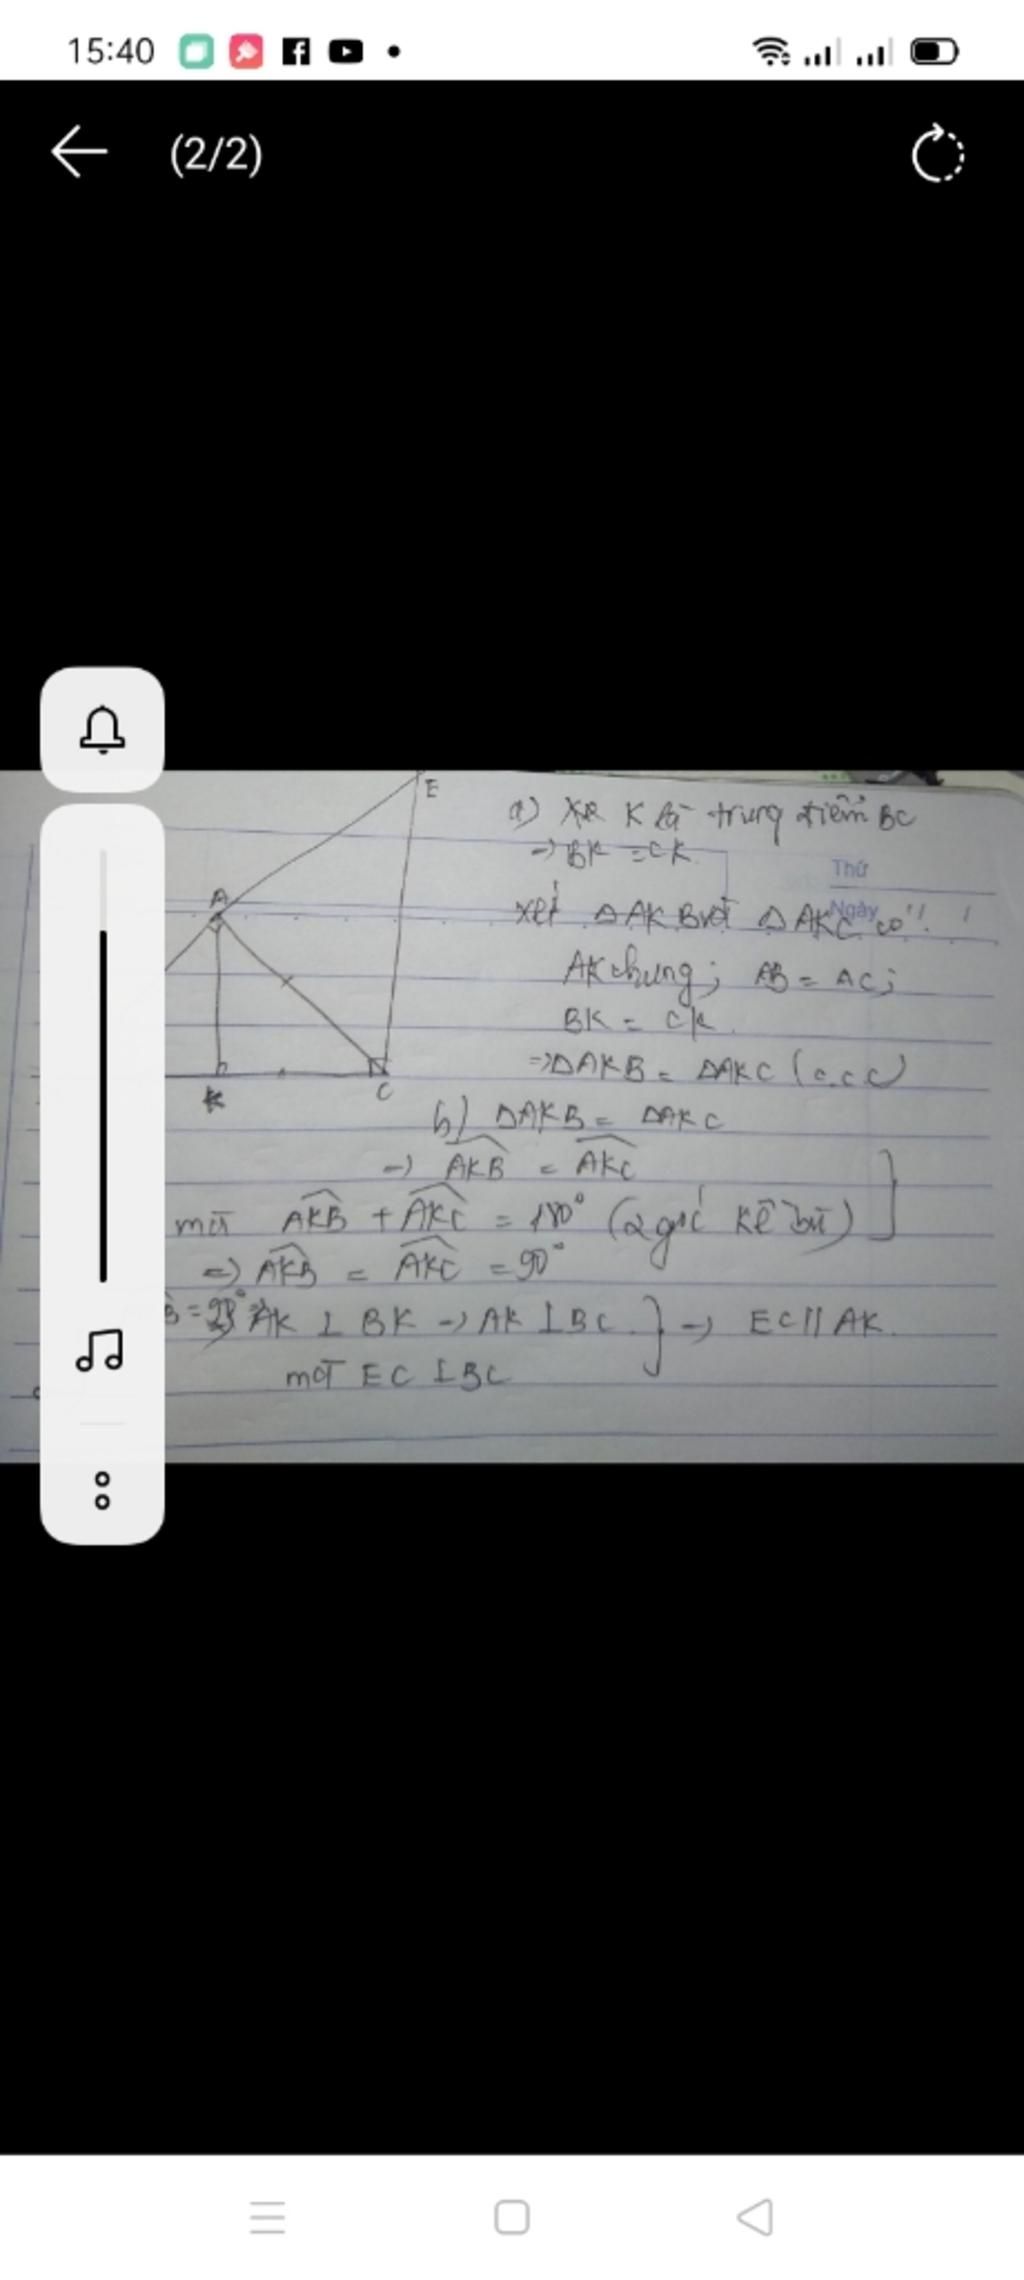 15:40
(2/2)
E
a) Xe K là trung điểm BC
→ BK = CK
Thứ
A
Ngày
xét ΔAKB với ΔAKC có
AK chung; AB = AC;
BK = CK
⇒ ΔAKB = ΔAKC (c.c.c)
K
C
b) ΔAKB = ΔAKC
→ AKB = AKC
mà AKB + AKC = 180° (2 góc kề bù)
⇒ AKB = AKC = 90°
AK ⊥ BK → AK ⊥ BC → EC // AK
mà EC ⊥ BC